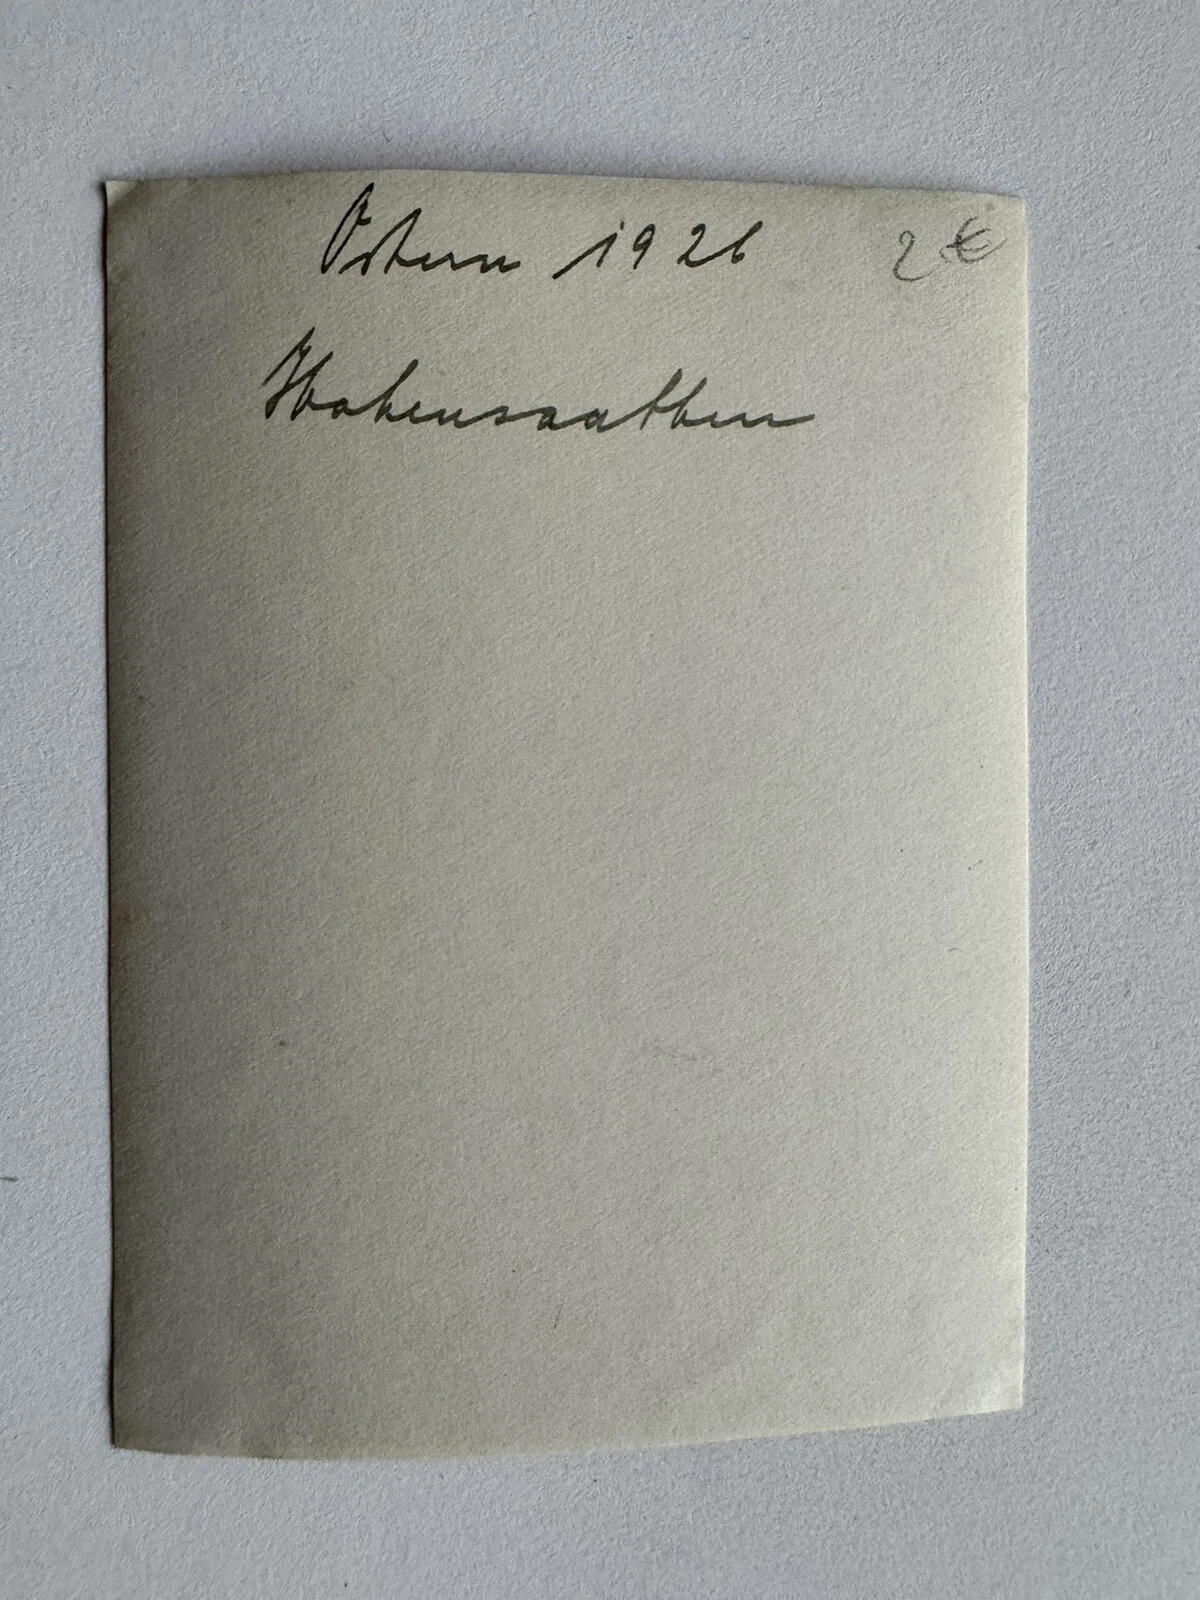 Ostern 1926 2 €
Hohensaathen